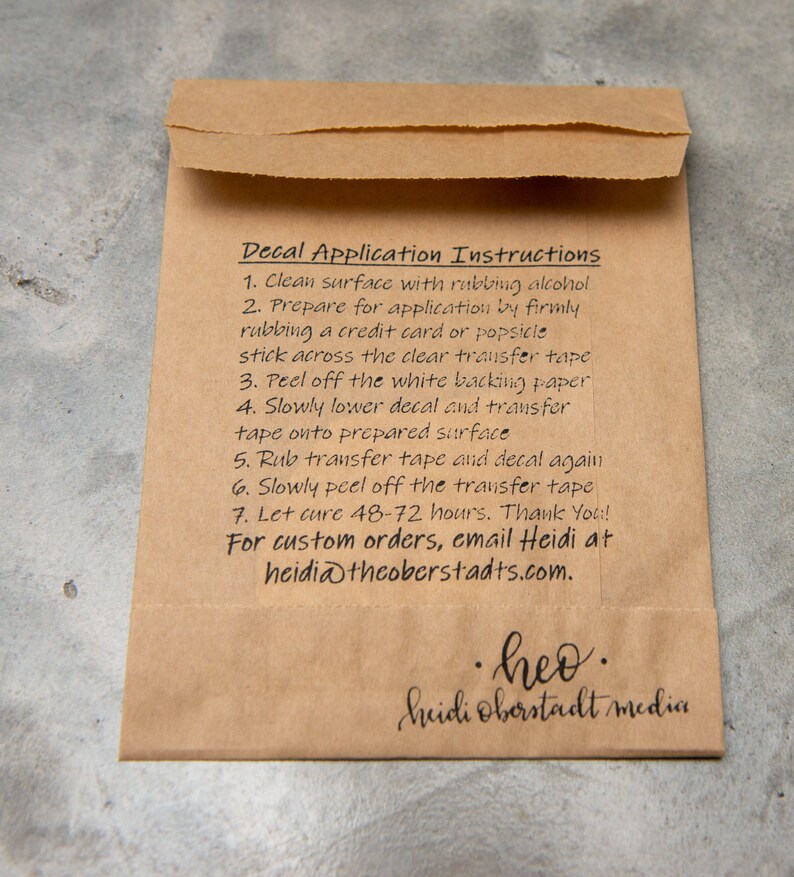 Decal Application Instructions
1. Clean surface with rubbing alcohol
2. Prepare for application by firmly
rubbing a credit card or popsicle
stick across the clear transfer tape
3. Peel off the white backing paper
4. Slowly lower decal and transfer
tape onto prepared surface
5. Rub transfer tape and decal again
6. Slowly peel off the transfer tape
7. Let cure 48-72 hours. Thank You!
For custom orders, email Heidi at
heidi@theoberstadts.com.
· heo ·
heidi oberstadt media